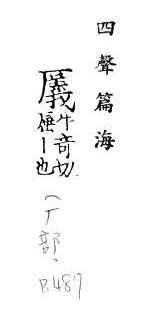 四聲篇海
牛奇切
丨也
(厂部、
P.487